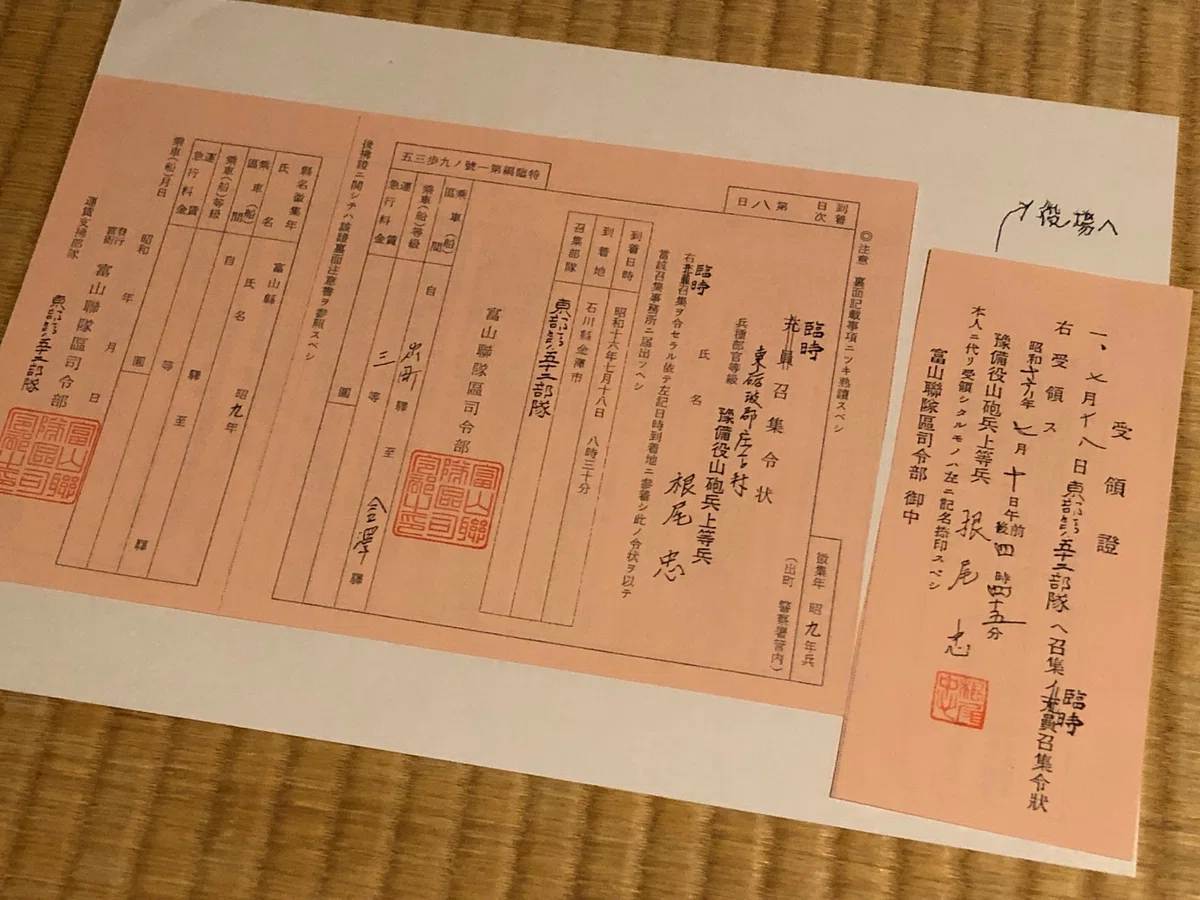 役場へ
受領證
一、七月十八日東部第五十二部隊へ召集ノ臨時充員召集令狀
右受領ス
昭和十六年七月十日午前後四時四十五分
豫備役山砲兵上等兵 根尾 忠
根尾忠
本人ニ代リ受領シタルモノハ左ニ記名捺印スベシ
富山聯隊區司令部 御中
◎注意 裏面記載事項ニツキ熟讀スベシ
到着日次 第八日
徵集年 昭九年兵
(出町 警察署管内)
臨時充員召集令狀
東礪波郡庄下村
兵種部官等級 豫備役山砲兵上等兵
氏名 根尾 忠
右臨時充員召集ヲ令セラル依テ左記日時到着地ニ參着シ此ノ令狀ヲ以テ
當該召集事務所ニ届出ツベシ
到着日時 昭和十六年七月十八日 八時三十分
到着地 石川縣金澤市
召集部隊 東部第五十二部隊
富山聯隊區司令部
特臨編第一號ノ九步三五
乘車(船)區間 自 出町 驛 至 金澤 驛
乘車(船)等級 三等
運賃 急行料金 圓
後橋證ニ關シテハ該證裏面注意書ヲ參照スベシ
縣名徵集年 富山縣 昭九年
氏名 氏名
乘車(船)區間 自 驛 至 驛
乘車(船)等級 等
運賃 急行料金 圓
乘車(船)月日 昭和 年 月 日
發行官衙 富山聯隊區司令部
運賃支拂部隊 東部第五十二部隊